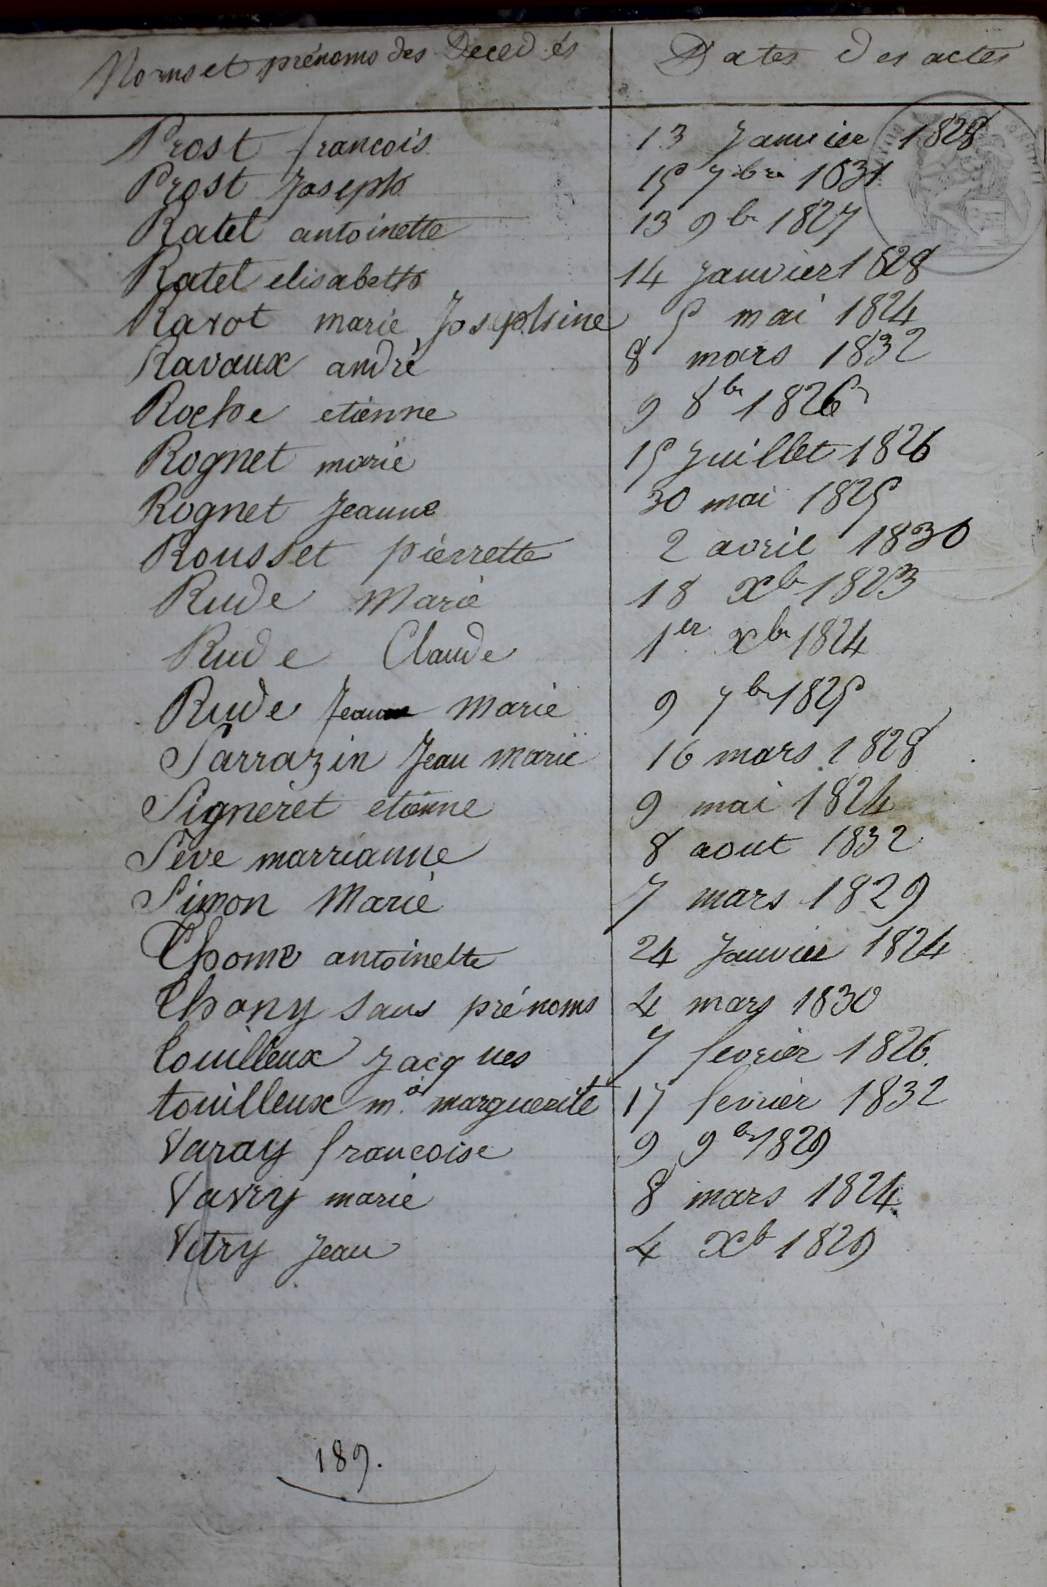 Noms et prénoms des Decedés Dates des actes
Prost francois 13 Janvier 1828
Prost Joseph 15 7bre 1831
Ratel antoinette 13 9b 1827
Ratel elisabeth 14 Janvier 1828
Ravot marie Josephine 5 mai 1824
Ravaux andré 8 mars 1832
Roche etienne 9 8br 1826
Rognet marie 15 Juillet 1826
Rognet Jeanne 30 mai 1825
Rousset pierrette 2 avril 1830
Rude Marie 18 Xb 1823
Rude Claude 1er Xbr 1824
Rude Jean Marie 9 7b 1825
Sarrazin Jean Marie 16 mars 1828
Signeret etienne 9 mai 1824
Sève marrianne 8 aout 1832
Simon Marie 7 mars 1829
Thome antoinette 24 Janvier 1824
Thony sans prénoms 4 mars 1830
touilleux Jacques 7 fevrier 1826
touilleux m. marguerite 17 fevrier 1832
Varay francoise 9 9br 1829
Vavry marie 8 mars 1824
Vitry Jean 4 Xb 1829
189.